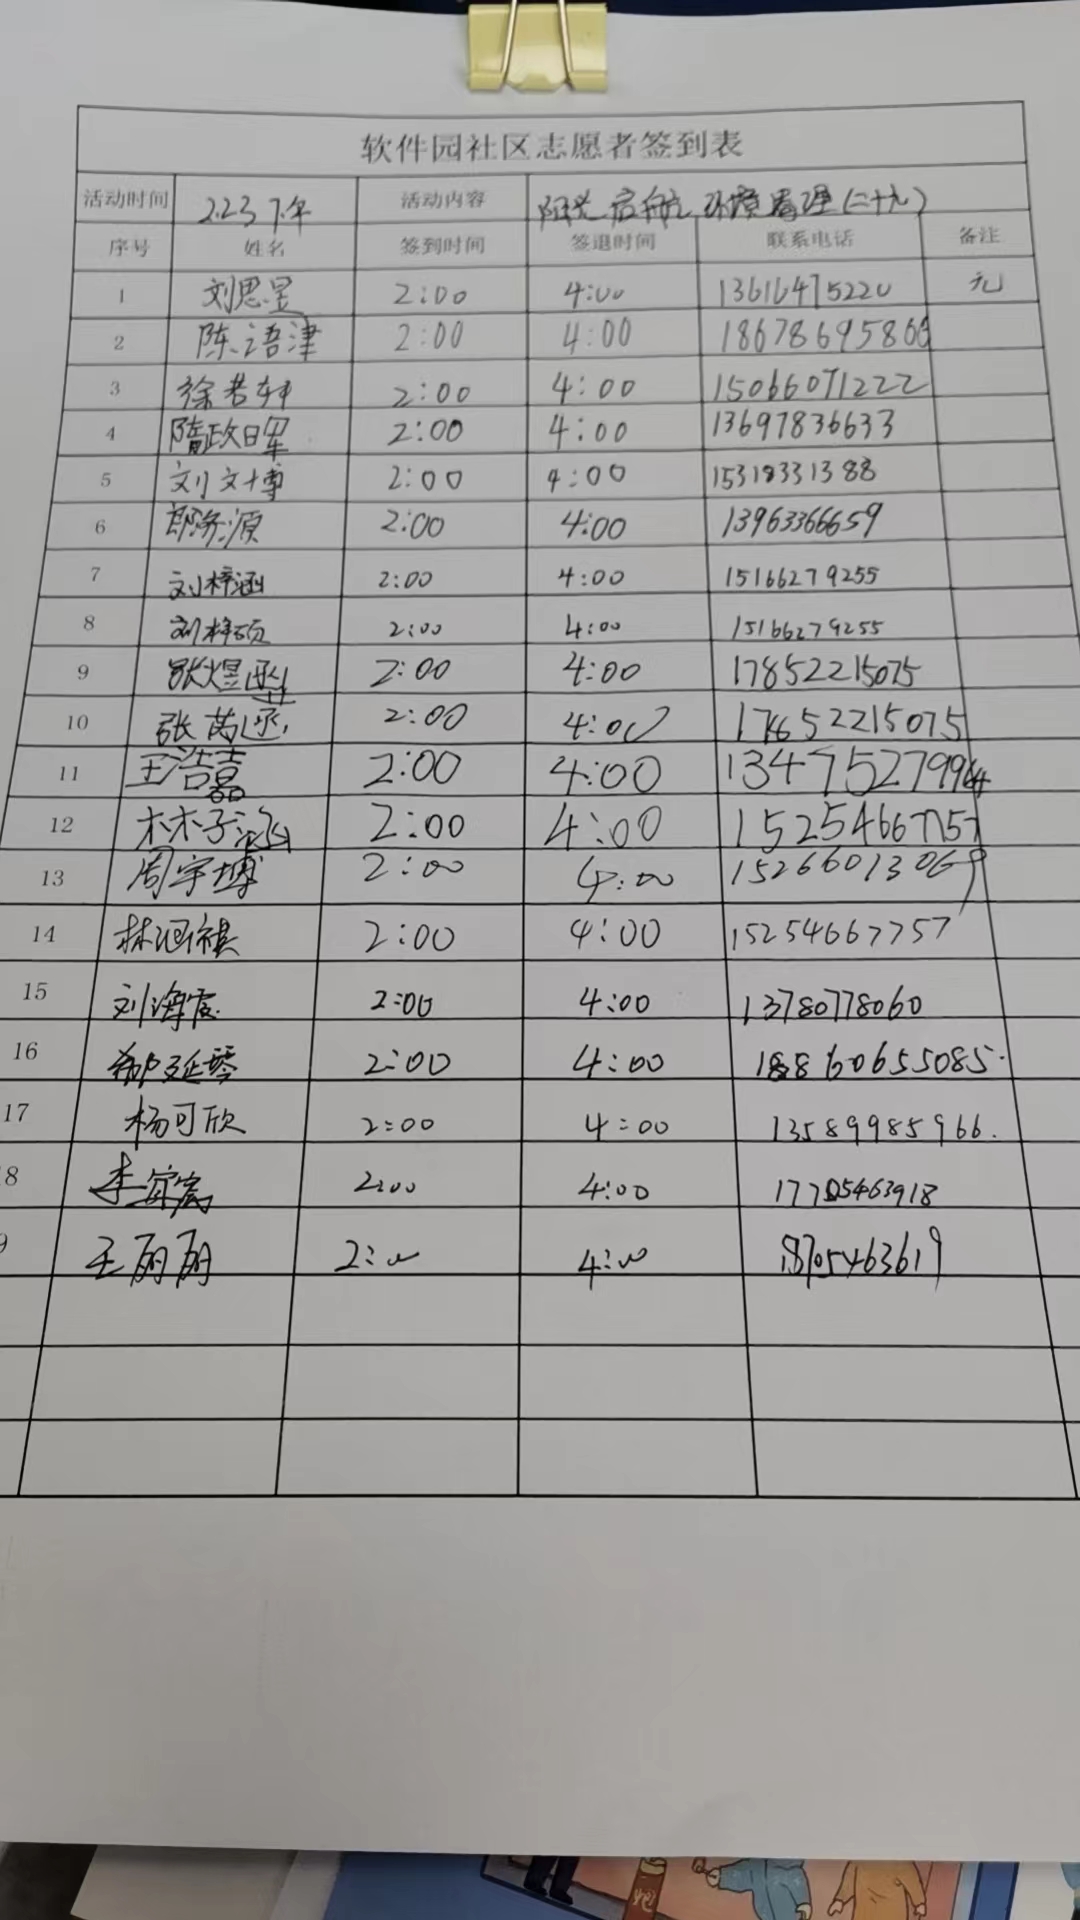 软件园社区志愿者签到表
活动时间 2.23 下午 活动内容 阳光启航 环境 理(二十九)
序号 姓名 签到时间 签退时间 联系电话 备注
1 刘思昱 2:00 4:00 13616475220 无
2 陈语津 2:00 4:00 186786958
3 徐若轩 2:00 4:00 15066071222
4 隋政 2:00 4:00 13697836633
5 刘文博 2:00 4:00 15318331388
6 郎济源 2:00 4:00 13963366659
7 刘梓涵 2:00 4:00 15166279255
8 刘梓硕 2:00 4:00 15166279255
9 张煜 2:00 4:00 17852215075
10 张 2:00 4:00 17652215075
11 王浩嘉 2:00 4:00 1347527999
12 林子涵 2:00 4:00 15254667757
13 周宇博 2:00 4:00 15266013069
14 林 祺 2:00 4:00 15254667757
15 刘海霞 2:00 4:00 13780778060
16 延琴 2:00 4:00 60655085.
17 杨可欣 2:00 4:00 13589985966.
8 李 2:00 4:00 5463918
9 王丽丽 2:00 4:00 18705463619